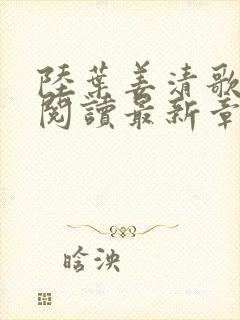 陸葉姜清歌
閱讀最新章
晗泱